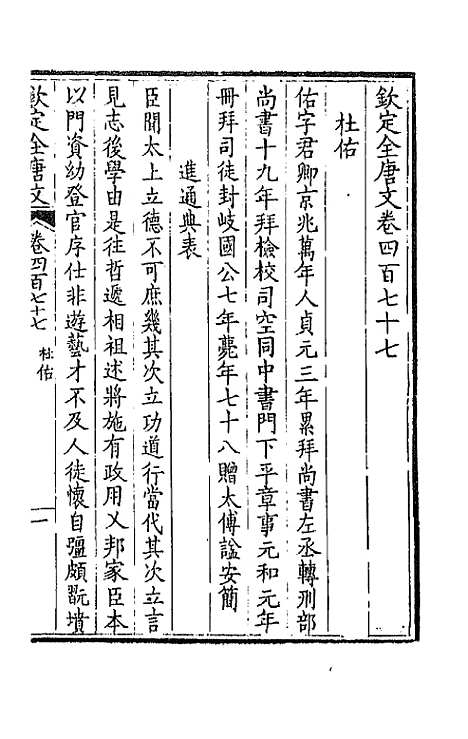 欽定全唐文卷四百七十七
杜佑
佑字君卿京兆萬年人貞元三年累拜尚書左丞轉刑部
尚書十九年拜檢校司空同中書門下平章事元和元年
冊拜司徒封岐國公七年薨年七十八贈太傅諡安簡
進通典表
臣聞太上立德不可庶幾其次立功道行當代其次立言
見志後學由是往哲遞相祖述將施有政用乂邦家臣本
以門資幼登官序仕非遊藝才不及人徒懷自彊頗翫墳
欽定全唐文 卷四百七十七 杜佑 一